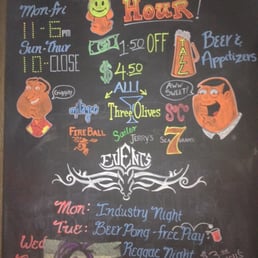 Mon-Fri
HOUR!
11-6pm
$1.50 OFF
Sun-Thur
10-CLOSE
BEER &
Appetizers
TALL
$4.50
ALL!
GIGGITY
AWW SWEET!
Three Olives
SoCo
FIREBALL
Sailor
JERRY'S
7
SEAGRAMS
EVENTS
Mon: Industry Night
Tue: Beer Pong - free Play
Wed
Reggae Night